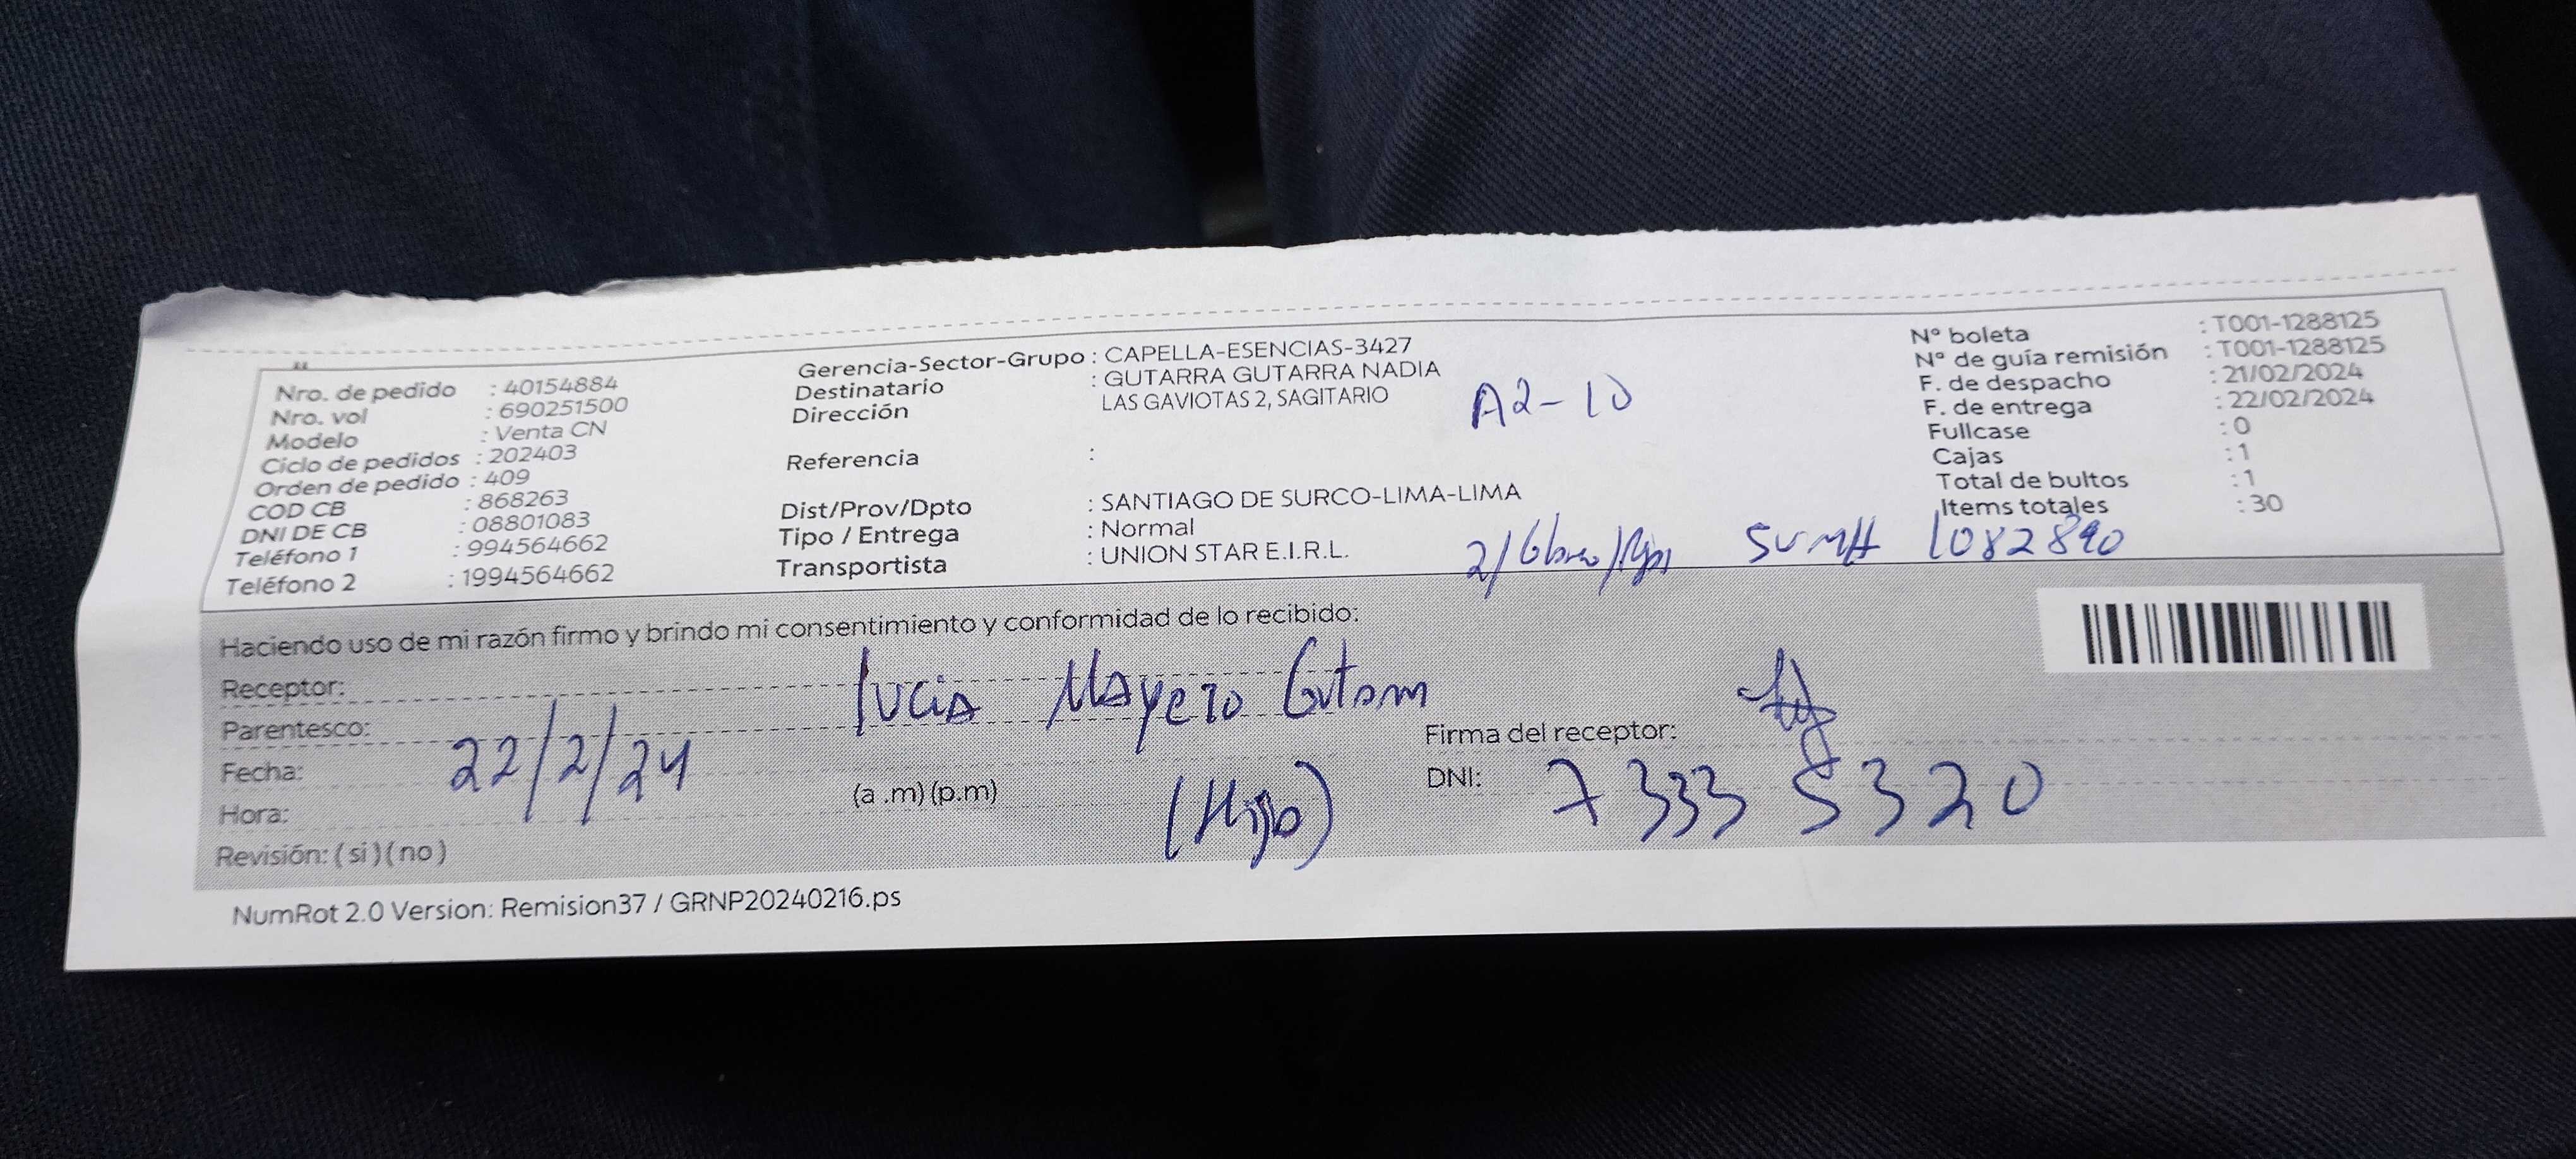 Nro. de pedido : 40154884
Nro. vol : 690251500
Modelo : Venta CN
Ciclo de pedidos : 202403
Orden de pedido : 409
COD CB : 868263
DNI DE CB : 08801083
Teléfono 1 : 994564662
Teléfono 2 : 1994564662
Gerencia-Sector-Grupo : CAPELLA-ESENCIAS-3427
Destinatario : GUTARRA GUTARRA NADIA
Dirección LAS GAVIOTAS 2, SAGITARIO
A2-10
Referencia :
Dist/Prov/Dpto : SANTIAGO DE SURCO-LIMA-LIMA
Tipo / Entrega : Normal
Transportista : UNION STAR E.I.R.L.
Nº boleta : T001-1288125
Nº de guía remisión : T001-1288125
F. de despacho : 21/02/2024
F. de entrega : 22/02/2024
Fullcase : 0
Cajas : 1
Total de bultos : 1
Items totales : 30
2/ 1082890
Haciendo uso de mi razón firmo y brindo mi consentimiento y conformidad de lo recibido:
Receptor: Lucia Mayero
Parentesco:
Fecha: 22/2/24
Hora: (a .m) (p.m)
(Hijo)
Revisión: ( si ) ( no )
Firma del receptor:
DNI: 73335320
NumRot 2.0 Version: Remision37 / GRNP20240216.ps